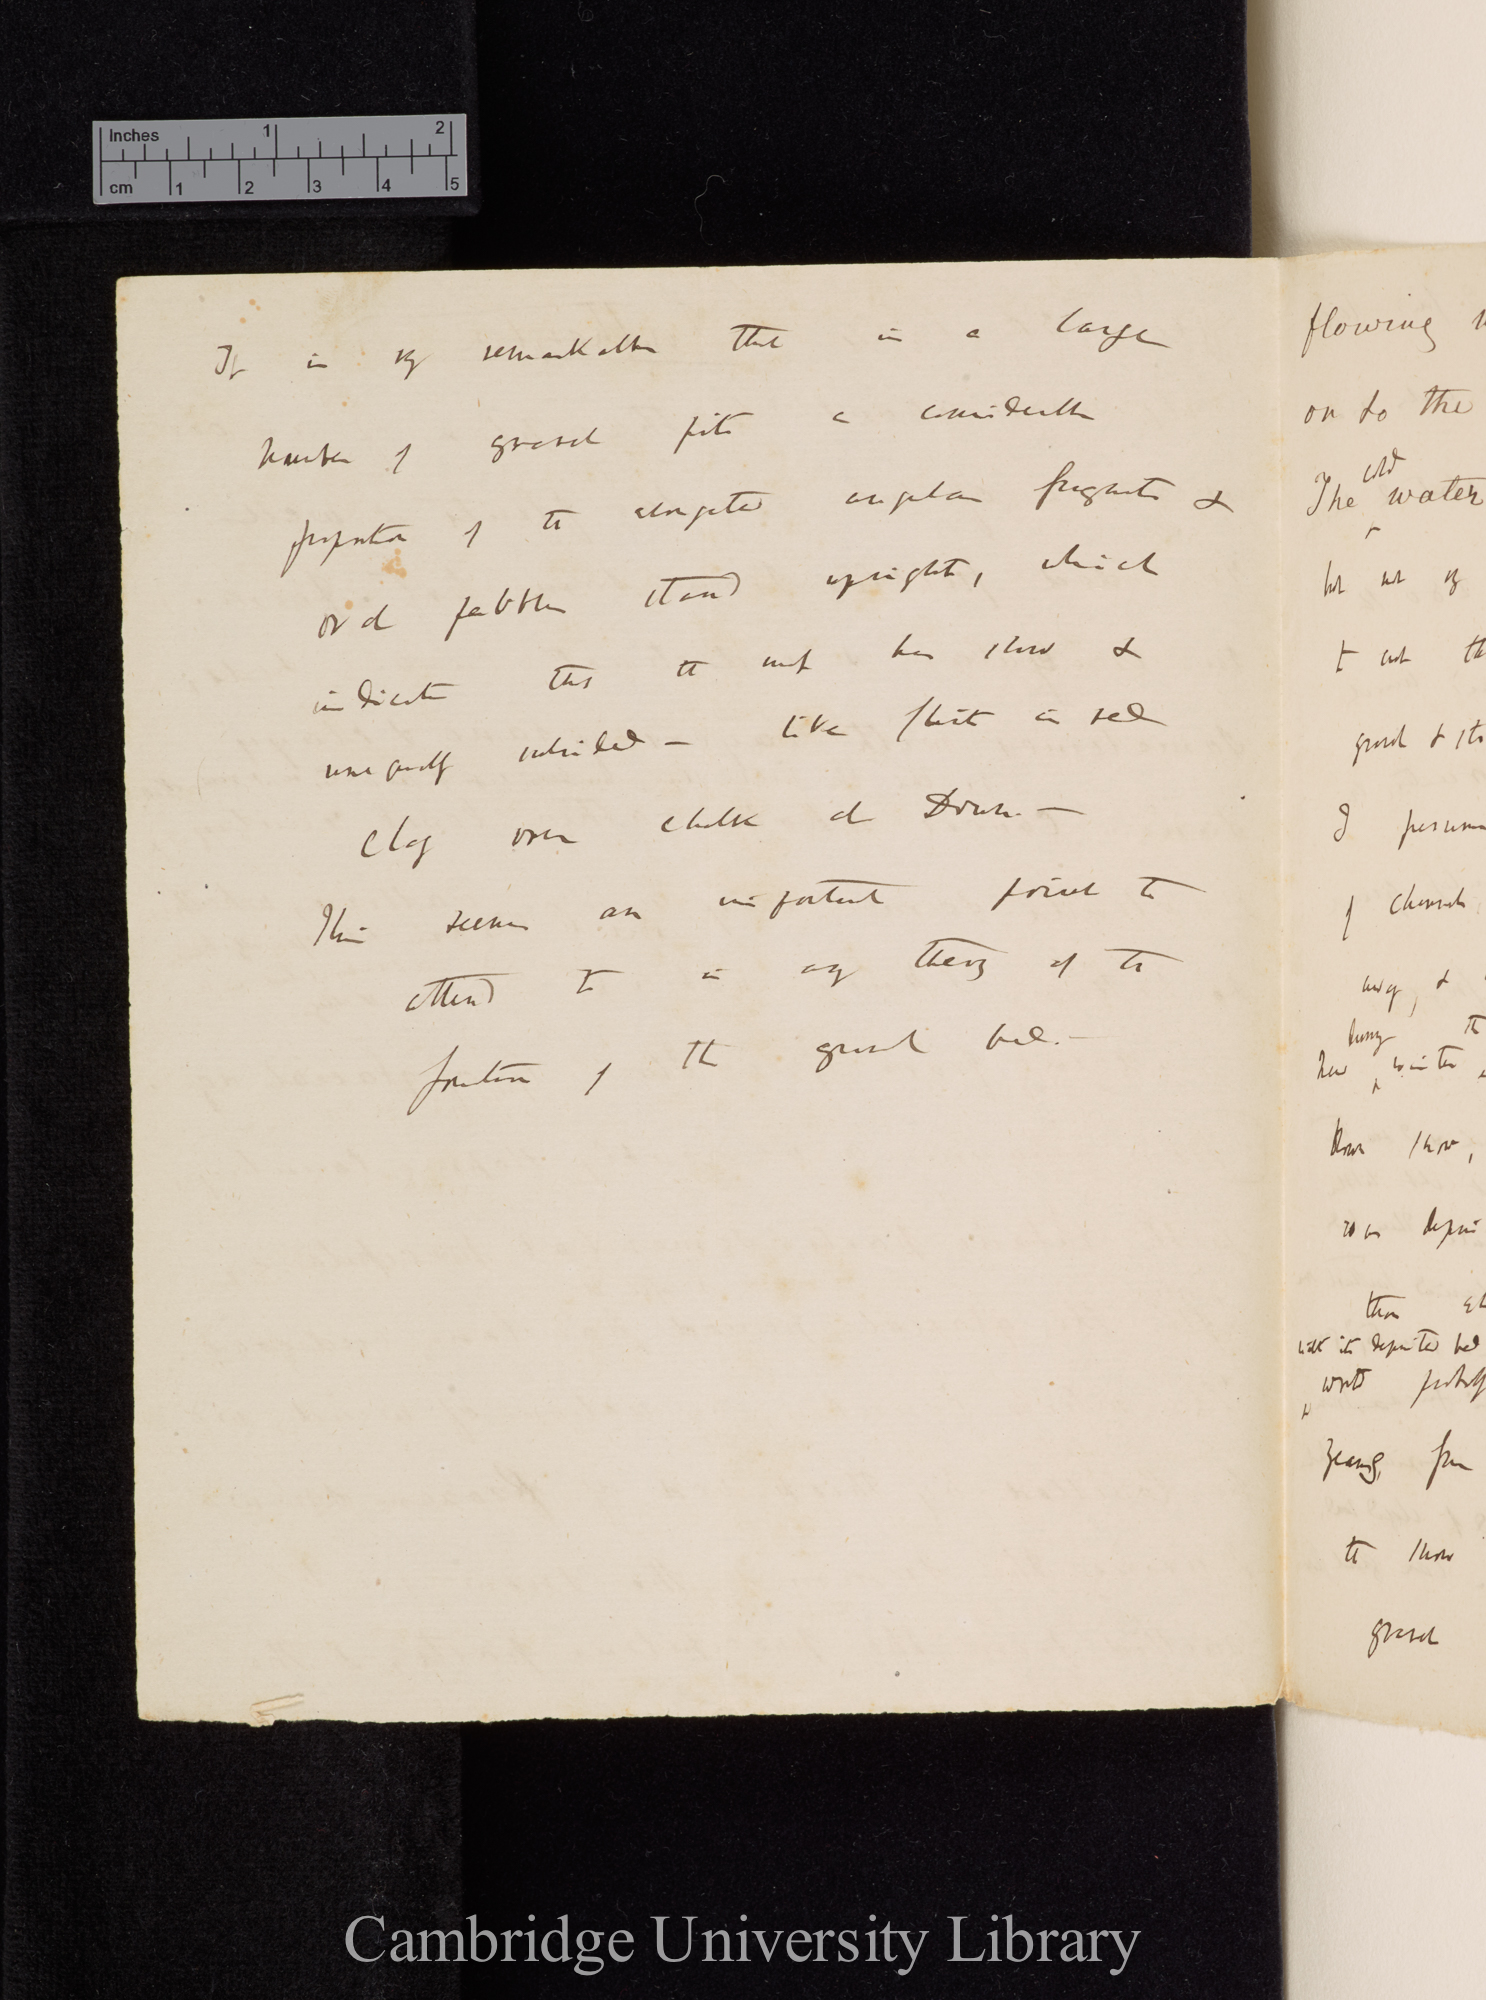 Inches 1 2
cm 1 2 3 4 5
It is vy remarkable that in a large
number of gravel pits a considerable
proportion of the elongated angular fragments &
oval pebbles stand upright, which
indicates that the mass has slow &
unequally subsided — like flints in red
clay over chalk at Down. —
This seems an important point to
attend to in any theory of the
formation of the gravel beds. —
flowing
on to the
cold
The water
but not vy
& not th
gravel & sto
I presum
of channels
away, &
during th
how winter
blown snow,
was depos
than
with its deposited bed
would probably
years, from
the snow
gravel
Cambridge University Library